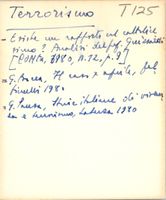 Terrorismo T125
- Esiste un rapporto col cattolicesimo? Analisi del prof.
[ROMA, 1980, n. 12, p. 9]
- G. Bocca, Il caso 7 aprile, Feltrinelli 1980
- G. Pansa, Storie italiane di violenza e terrorismo, Laterza 1980